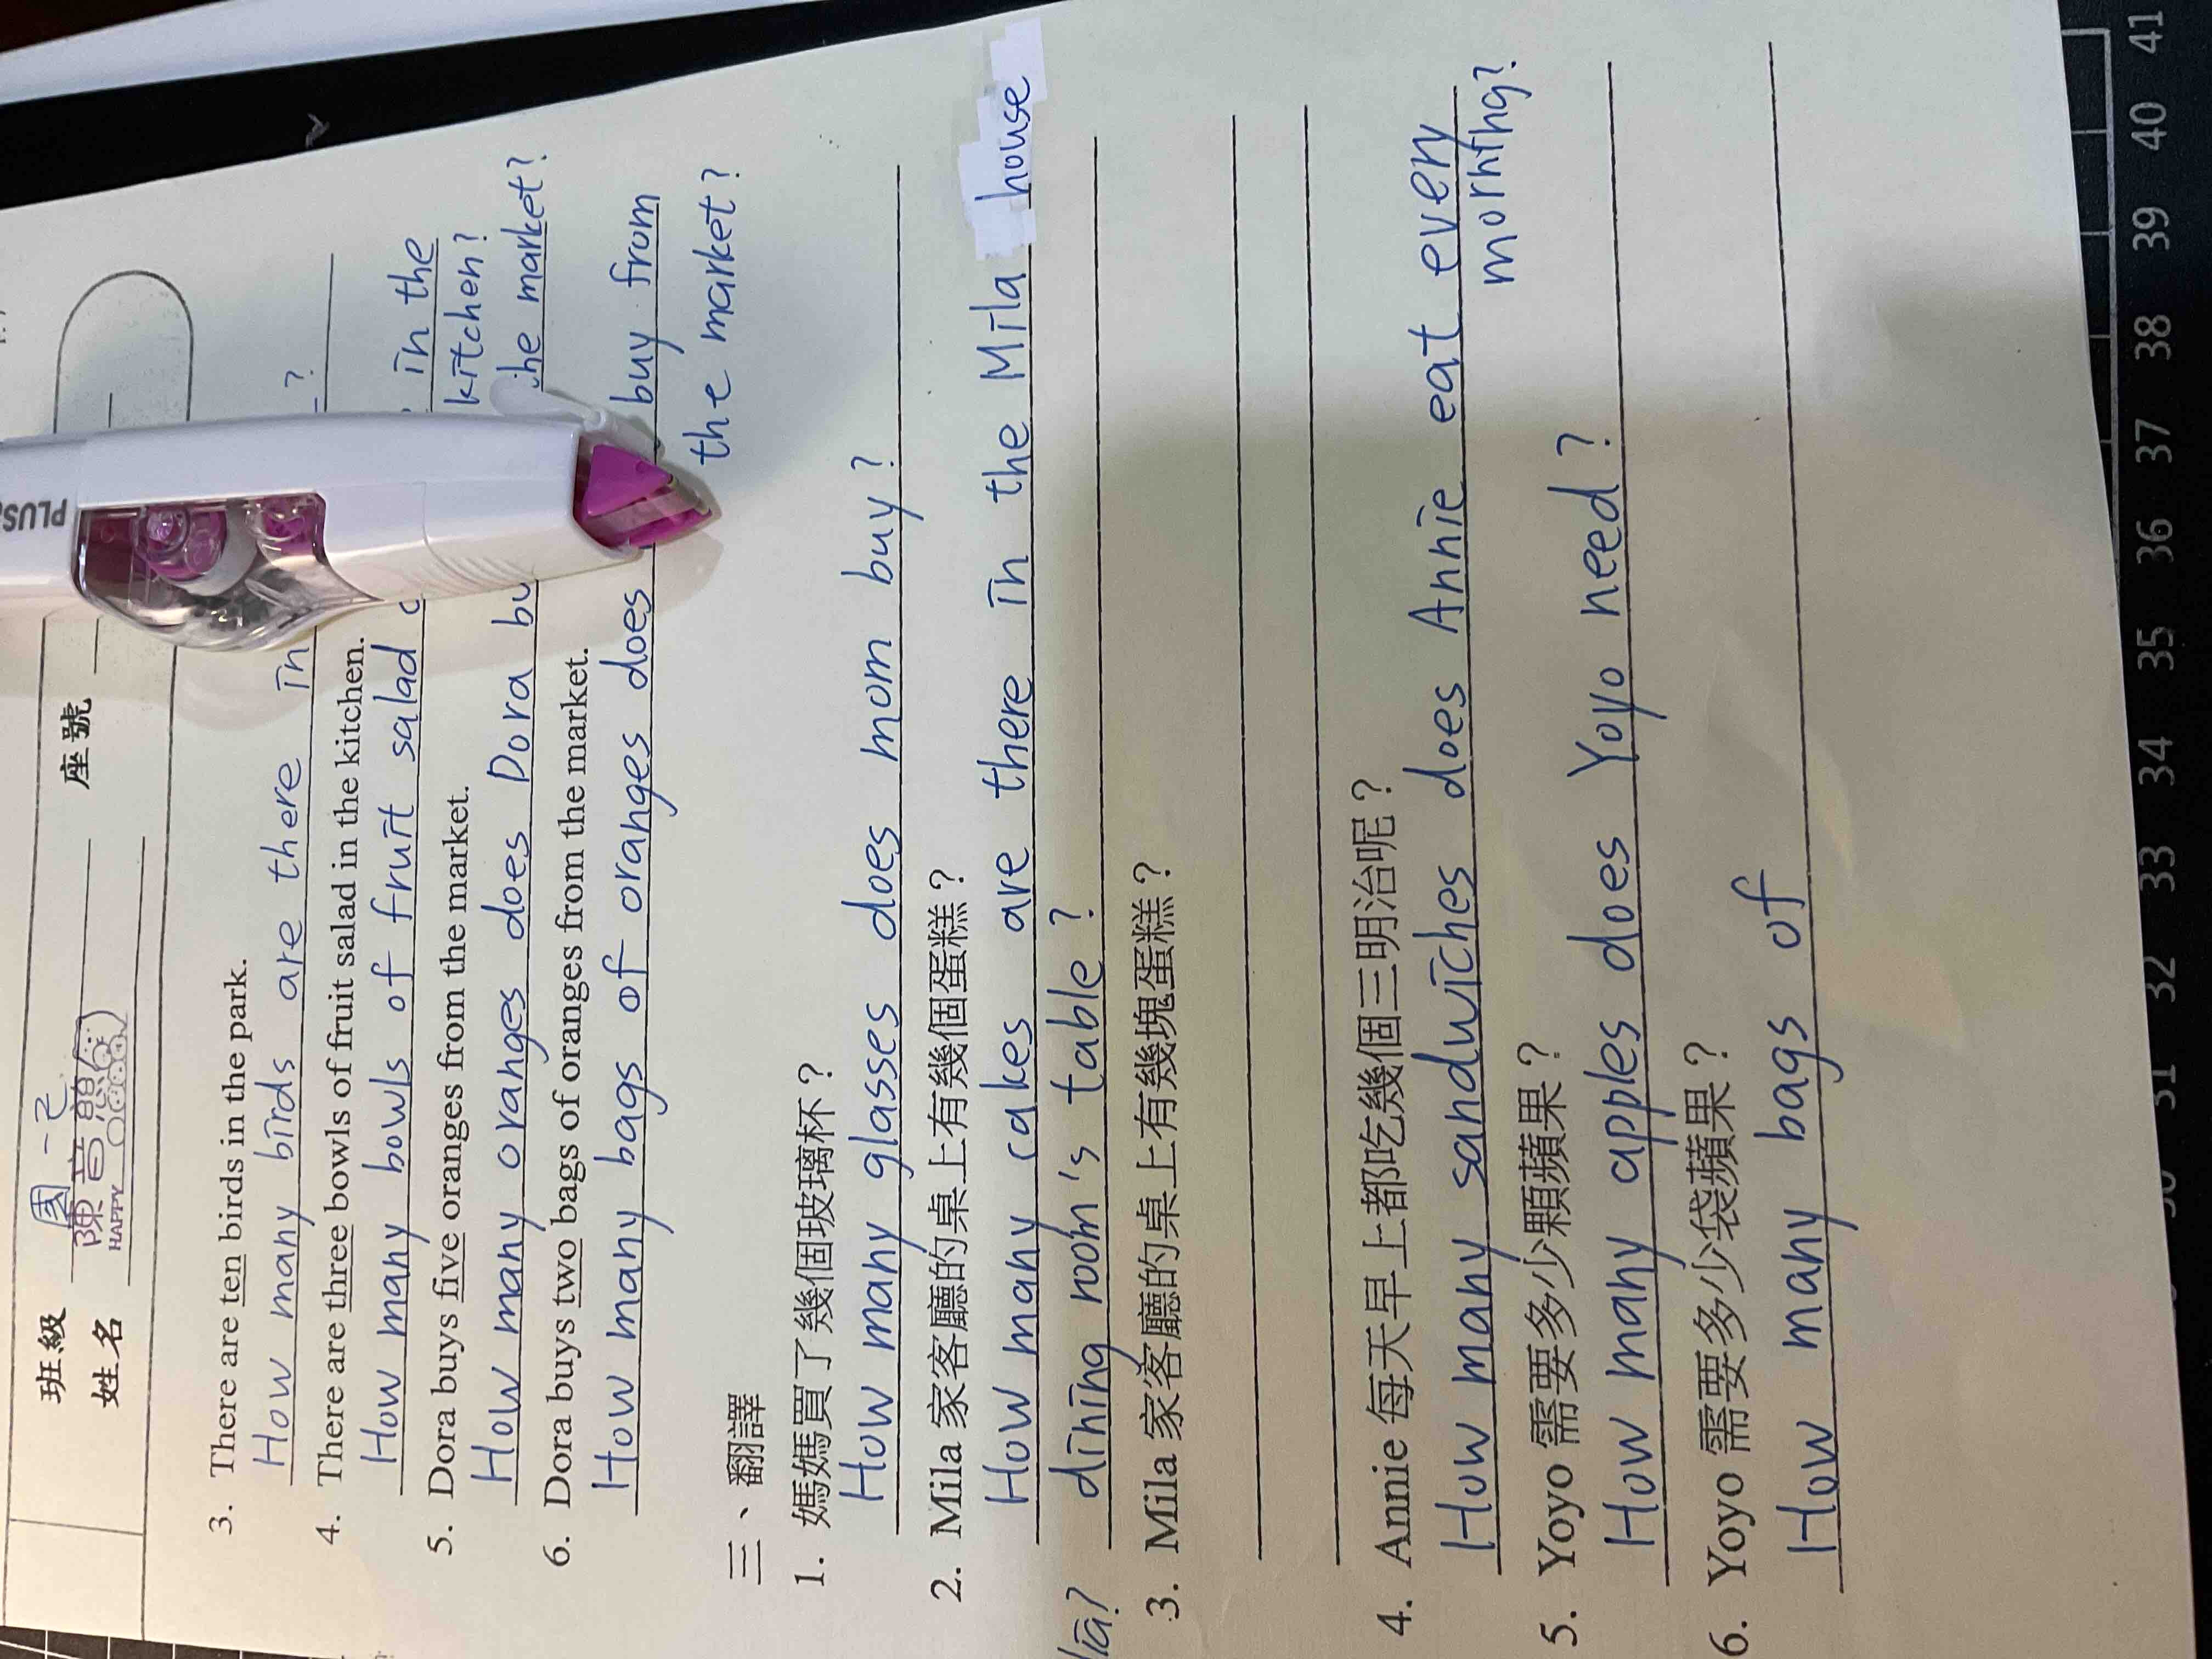 PLUS
班級 國一己 座號
姓名 陳音熙
HAPPY
3. There are ten birds in the park.
How many birds are there in ?
4. There are three bowls of fruit salad in the kitchen.
How many bowls of fruit salad in the
kitchen?
5. Dora buys five oranges from the market.
How many oranges does Dora bu he market?
6. Dora buys two bags of oranges from the market.
How many bags of oranges does buy from
the market?
三、翻譯
1. 媽媽買了幾個玻璃杯？
How many glasses does mom buy?
2. Mila 家客廳的桌上有幾個蛋糕？
How many cakes are there in the Mila house
dining room's table?
3. Mila 家客廳的桌上有幾塊蛋糕？
4. Annie 每天早上都吃幾個三明治呢？
How many sandwiches does Annie eat every
morning?
5. Yoyo 需要多少顆蘋果？
How many apples does Yoyo need?
6. Yoyo 需要多少袋蘋果？
How many bags of
32 33 34 35 36 37 38 39 40 41